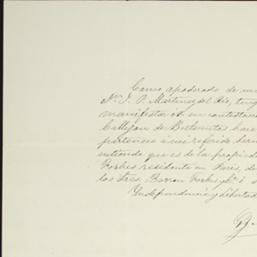 Como apoderado de mi
Sr. J. P. Martinez del Rio, teng
manifestar a en contestacion
Callejon de Betlemitas hace
pertenece a mi referido her
entiendo que es de la propied
Forbes residente en Paris, de
los Sres. Barron Forbes y Cª ó
Independencia y Libertad